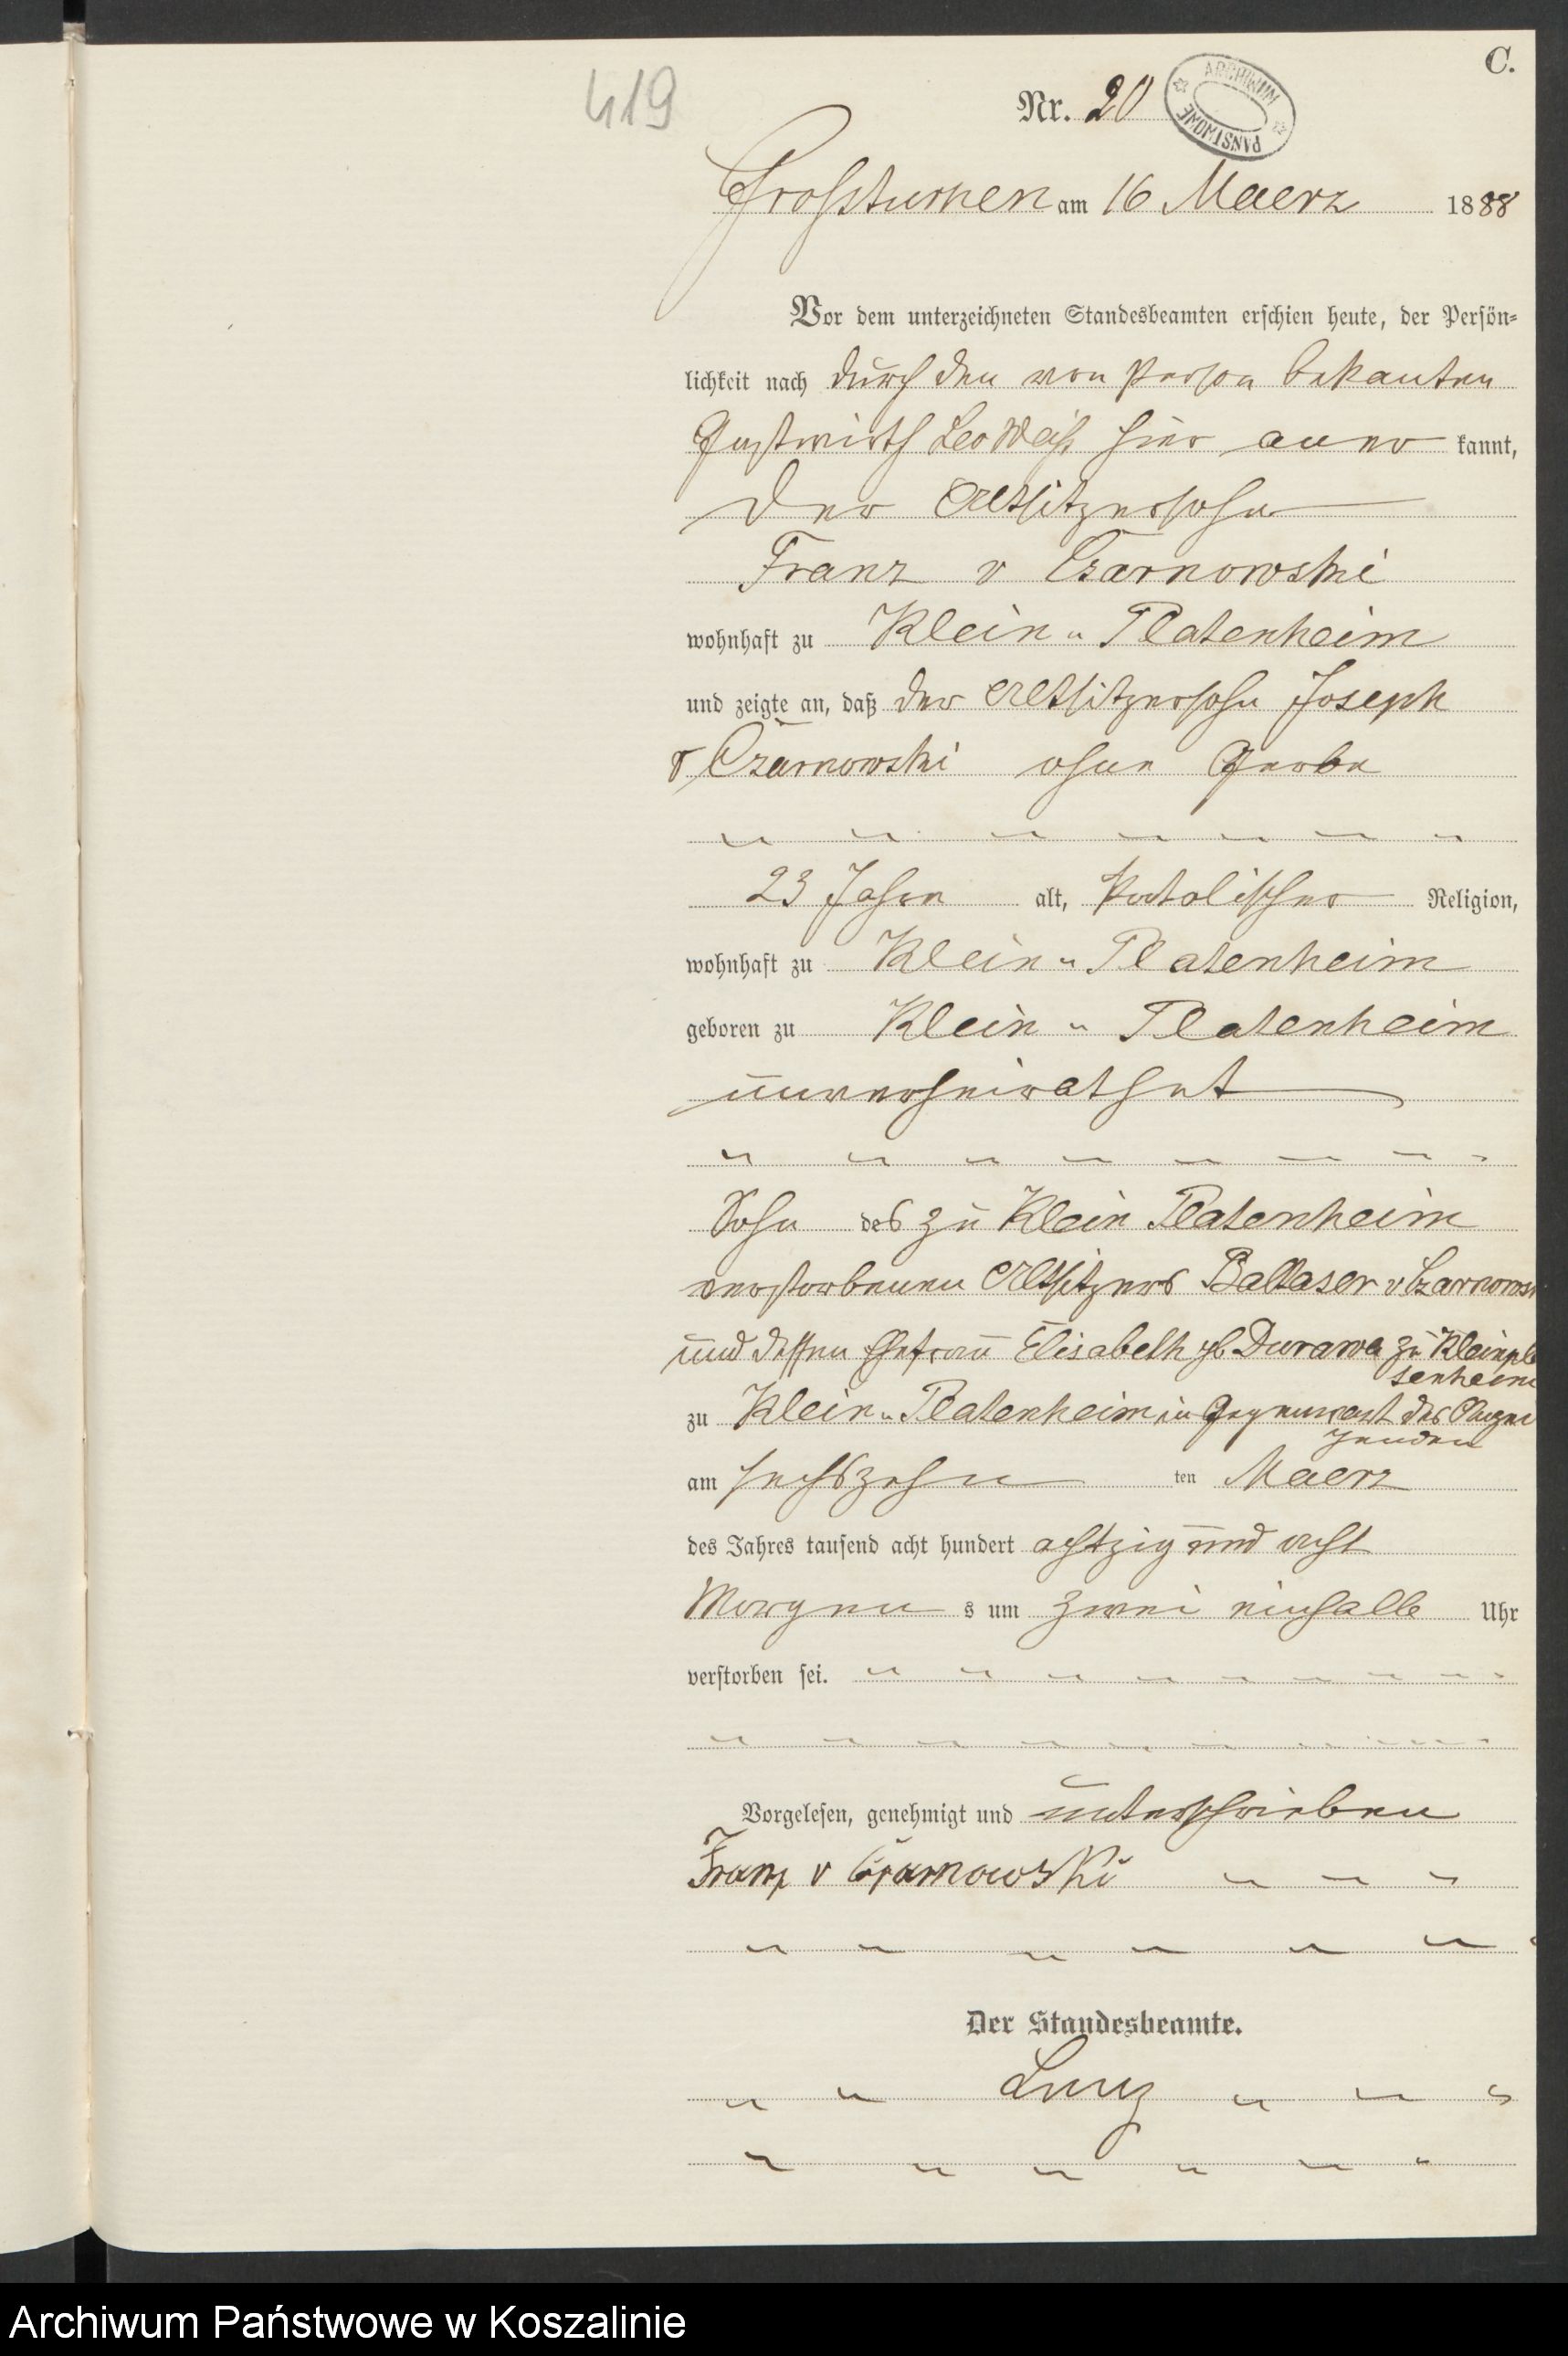 C.
419
Nr. 20
ARCHIWUM PAŃSTWOWE
Großtuchen am 16 Maerz 1888
Vor dem unterzeichneten Standesbeamten erschien heute, der Persön=
lichkeit nach durch den von Person bekanten
Gastwirth Leo Weiß hier aner kannt,
der Altsitzersohn
Franz v Czarnowski
wohnhaft zu Klein - Platenheim
und zeigte an, daß der Altsitzersohn Joseph
v Czarnowski ohne Gewerbe
23 Jahre alt, katolischer Religion,
wohnhaft zu Klein - Platenheim
geboren zu Klein - Platenheim
unverheirathet
Sohn des zu Klein Platenheim
verstorbenen Altsitzers Baltaser v Czarnowsk
und dessen Ehefrau Elisabeth gb Durawa zu Kleinpla
tenheim
zu Klein - Platenheim in Gegenwart des Anzei
genden
am sechszehn ten Maerz
des Jahres tausend acht hundert achtzig und acht
Morgen s um zwei einhalb Uhr
verstorben sei.
Vorgelesen, genehmigt und unterschrieben
Franz v Czarnowski
Der Standesbeamte.
Archiwum Państwowe w Koszalinie